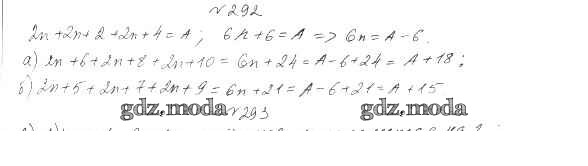 №292
2n+2n+2+2n+4=A; 6n+6=A => 6n=A-6.
а) 2n+6+2n+8+2n+10=6n+24=A-6+24=A+18;
б) 2n+5+2n+7+2n+9=6n+21=A-6+21=A+15
gdz.moda №293 gdz.moda